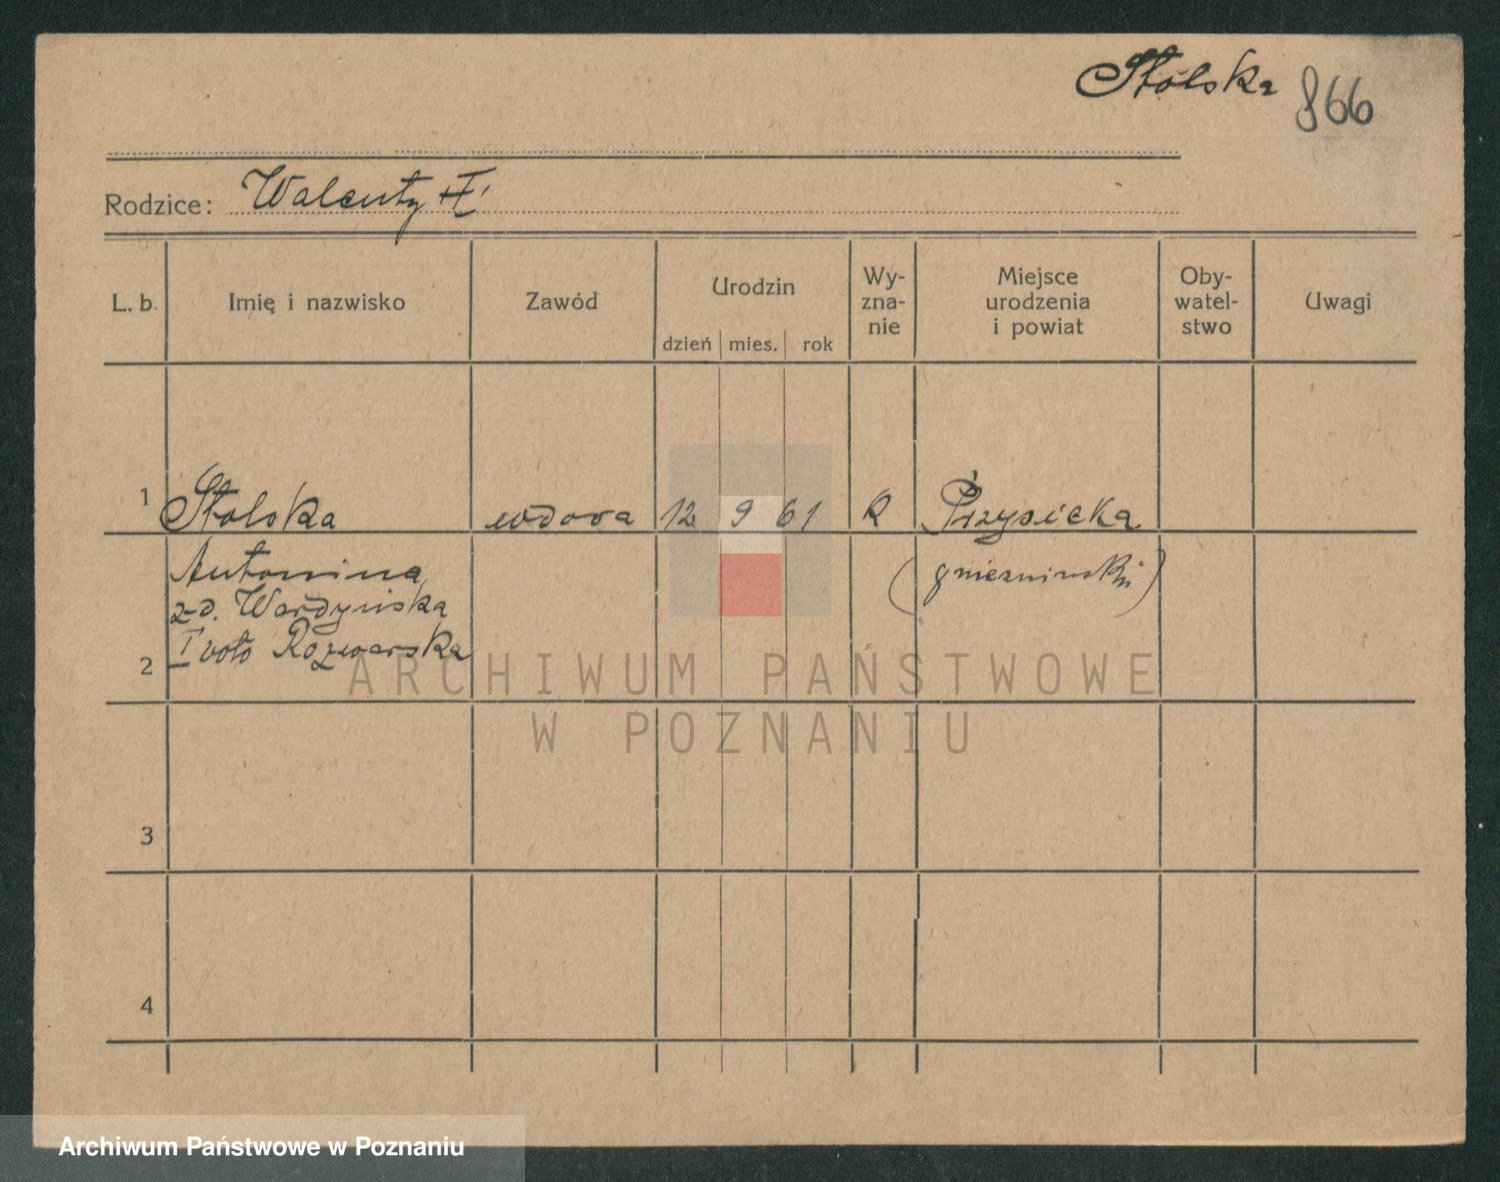 Stólska 866
Rodzice: Walenty
L. b. Imię i nazwisko Zawód Urodzin dzień mies. rok Wy-zna-nie Miejsce urodzenia i powiat Oby-watel-stwo Uwagi
1 Stolska wdowa 12 9 61 R Przysieka
Antonina (gniezninski)
z d. Wardyńska
I voto Rozwarska
2
3
4
ARCHIWUM PAŃSTWOWE
W POZNANIU
Archiwum Państwowe w Poznaniu